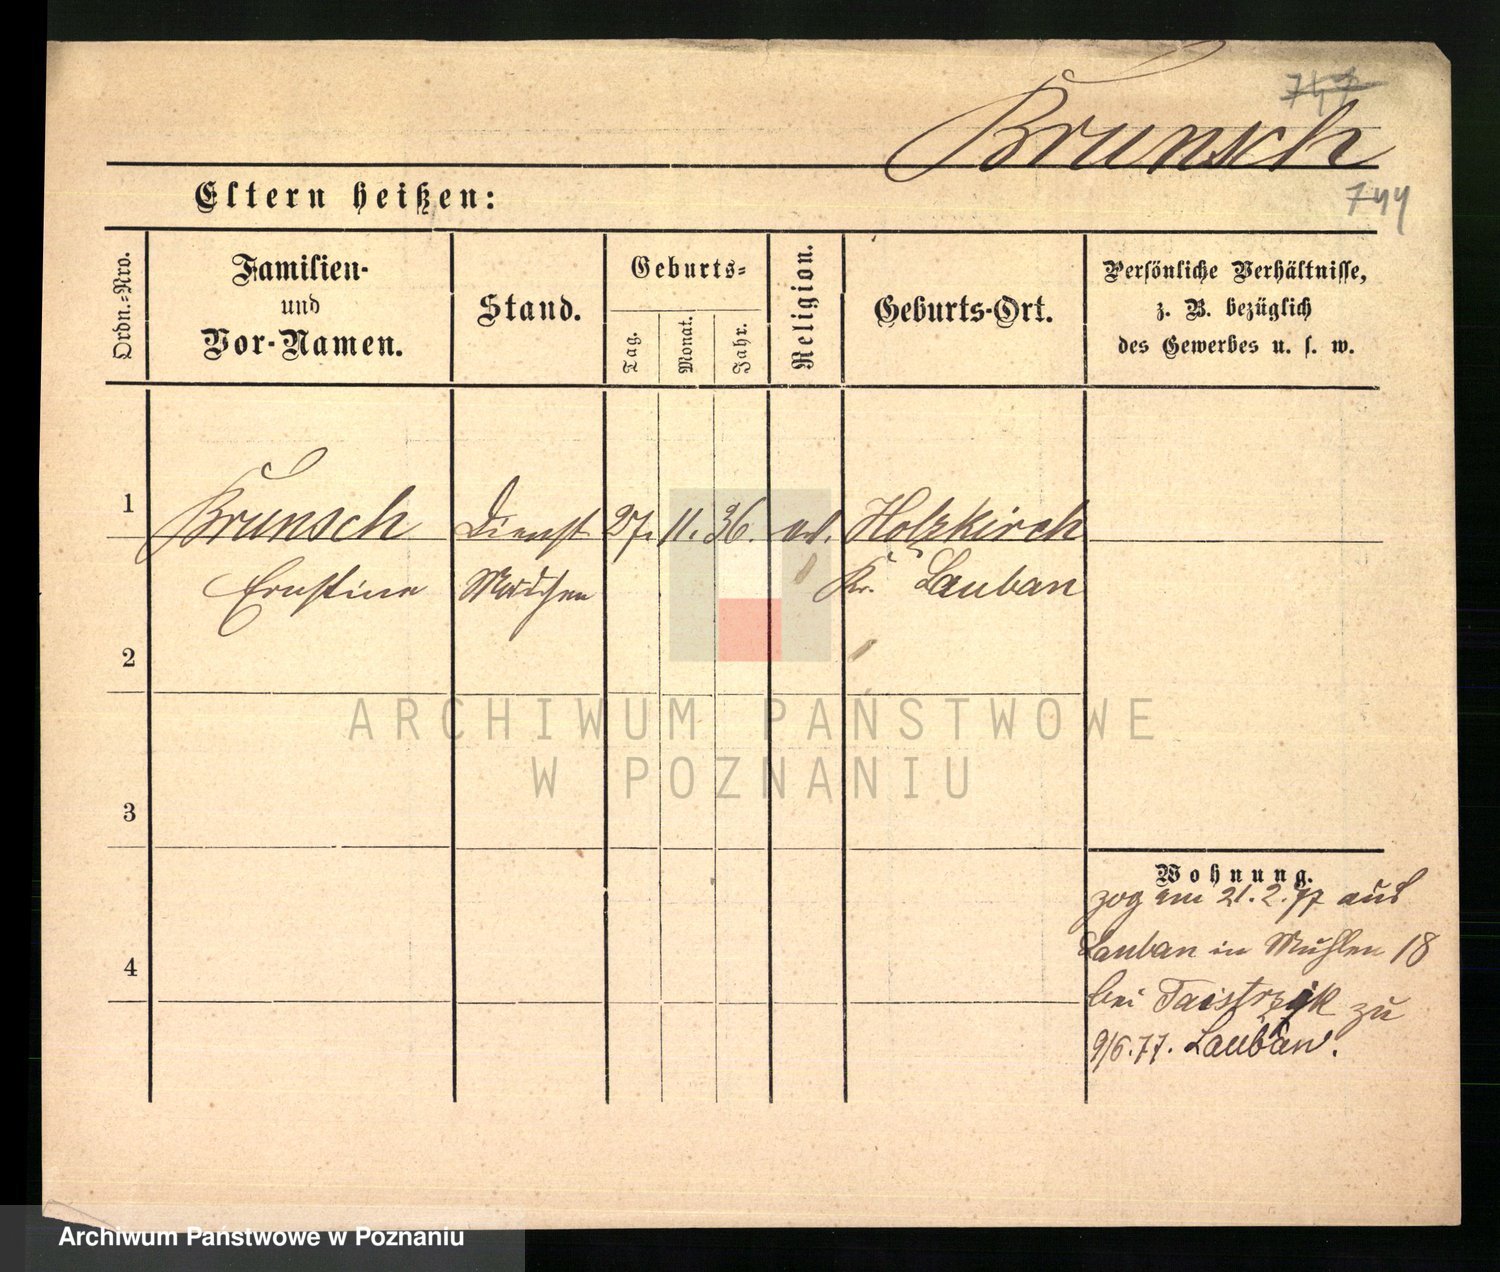 747
Brunsch
744
Eltern heißen:
Ordn.-Nro.
Familien-
und
Vor-Namen.
Stand.
Geburts-
Tag.
Monat.
Jahr.
Religion.
Geburts-Ort.
Persönliche Verhältnisse,
z. B. bezüglich
des Gewerbes u. s. w.
1
Brunsch Dienst 27. 11. 36. ev. Holzkirch
Ernstine Mädchen Kr. Lauban
2
3
4
Wohnung.
zog am 21.2.77 aus
Lauban in Mühlen 18
bei zu
9/6.77. Lauban.
ARCHIWUM PAŃSTWOWE
W POZNANIU
Archiwum Państwowe w Poznaniu